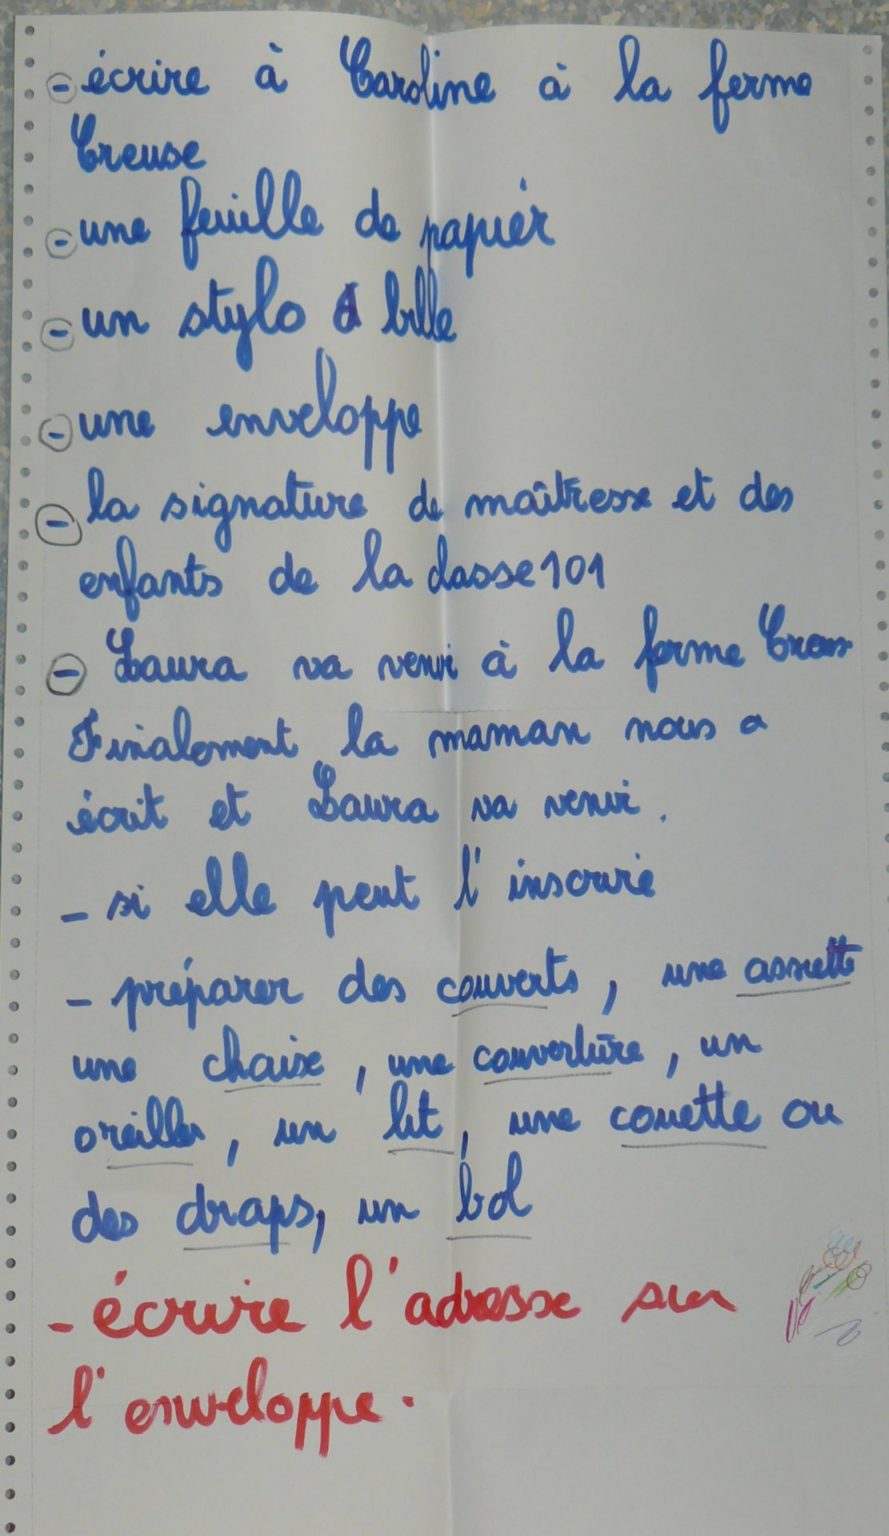 - écrire à Caroline à la ferme
Creuse
- une feuille de papier
- un stylo à bille
- une enveloppe
- la signature de maîtresse et des
enfants de la classe 101
- Laura va venir à la ferme
Finalement la maman nous a
écrit et Laura va venir.
- si elle peut l'inscrire
- préparer des couverts, une assiette
une chaise, une couverture, un
oreiller, un lit, une couette ou
des draps, un bol
- écrire l'adresse sur
l'enveloppe.